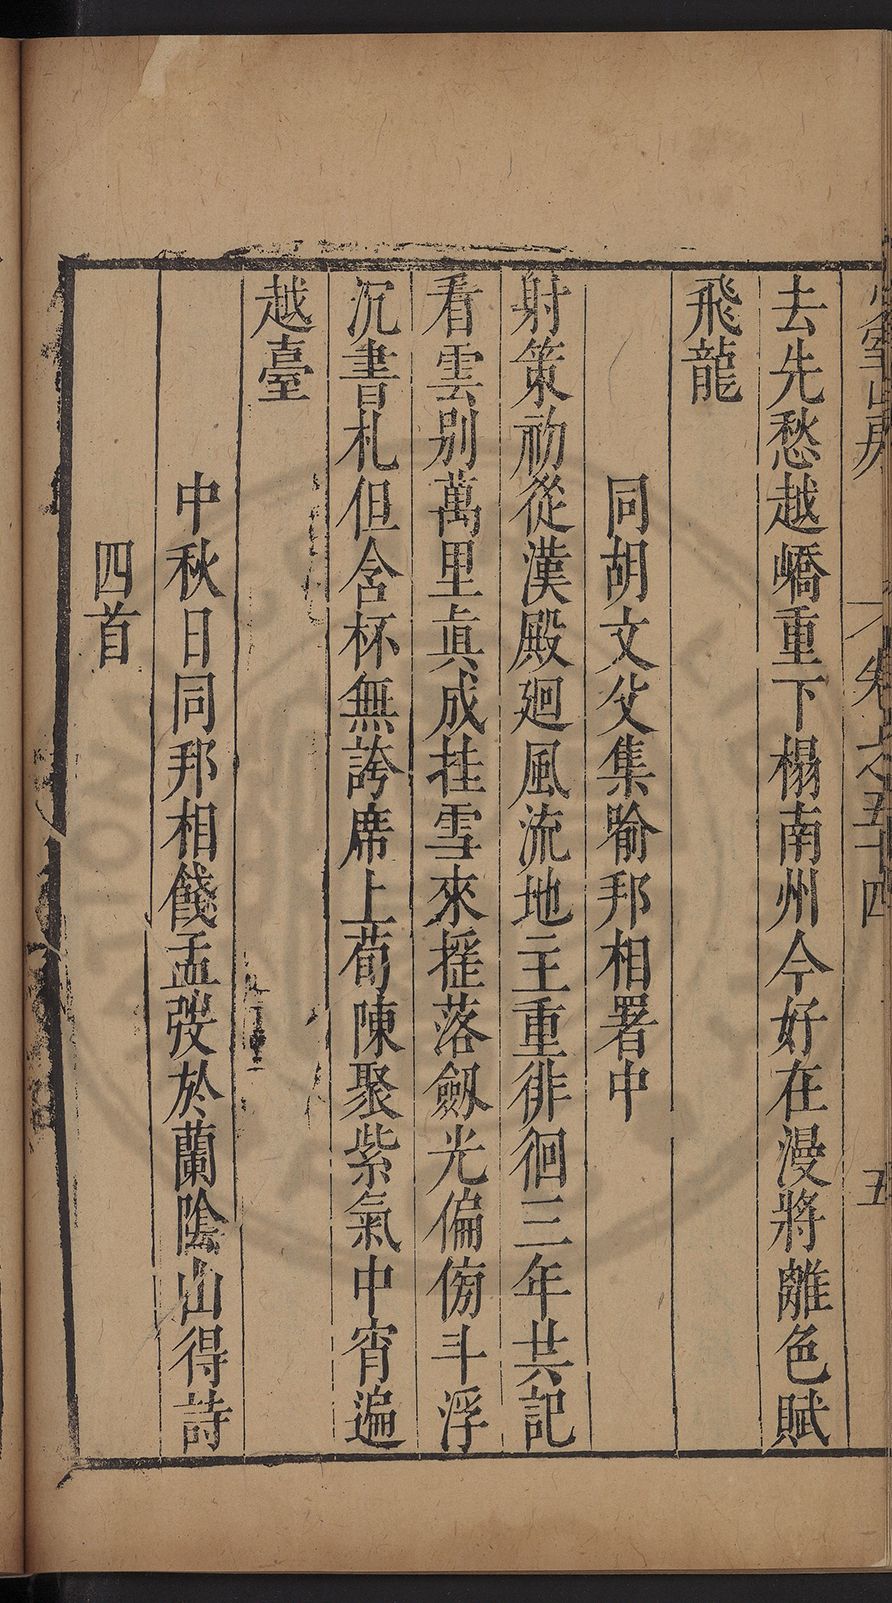 卷之五十四
五
去先愁越嶠重下榻南州今好在漫將離色賦
飛龍
同胡文父集喻邦相署中
射策初從漢殿廻風流地主重徘徊三年共記
看雲别萬里眞成挂雪來摇落劔光偏傍斗浮
沉書札但含杯無誇席上荀陳聚紫氣中宵遍
越臺
中秋日同邦相餞孟弢於蘭陰山得詩
四首